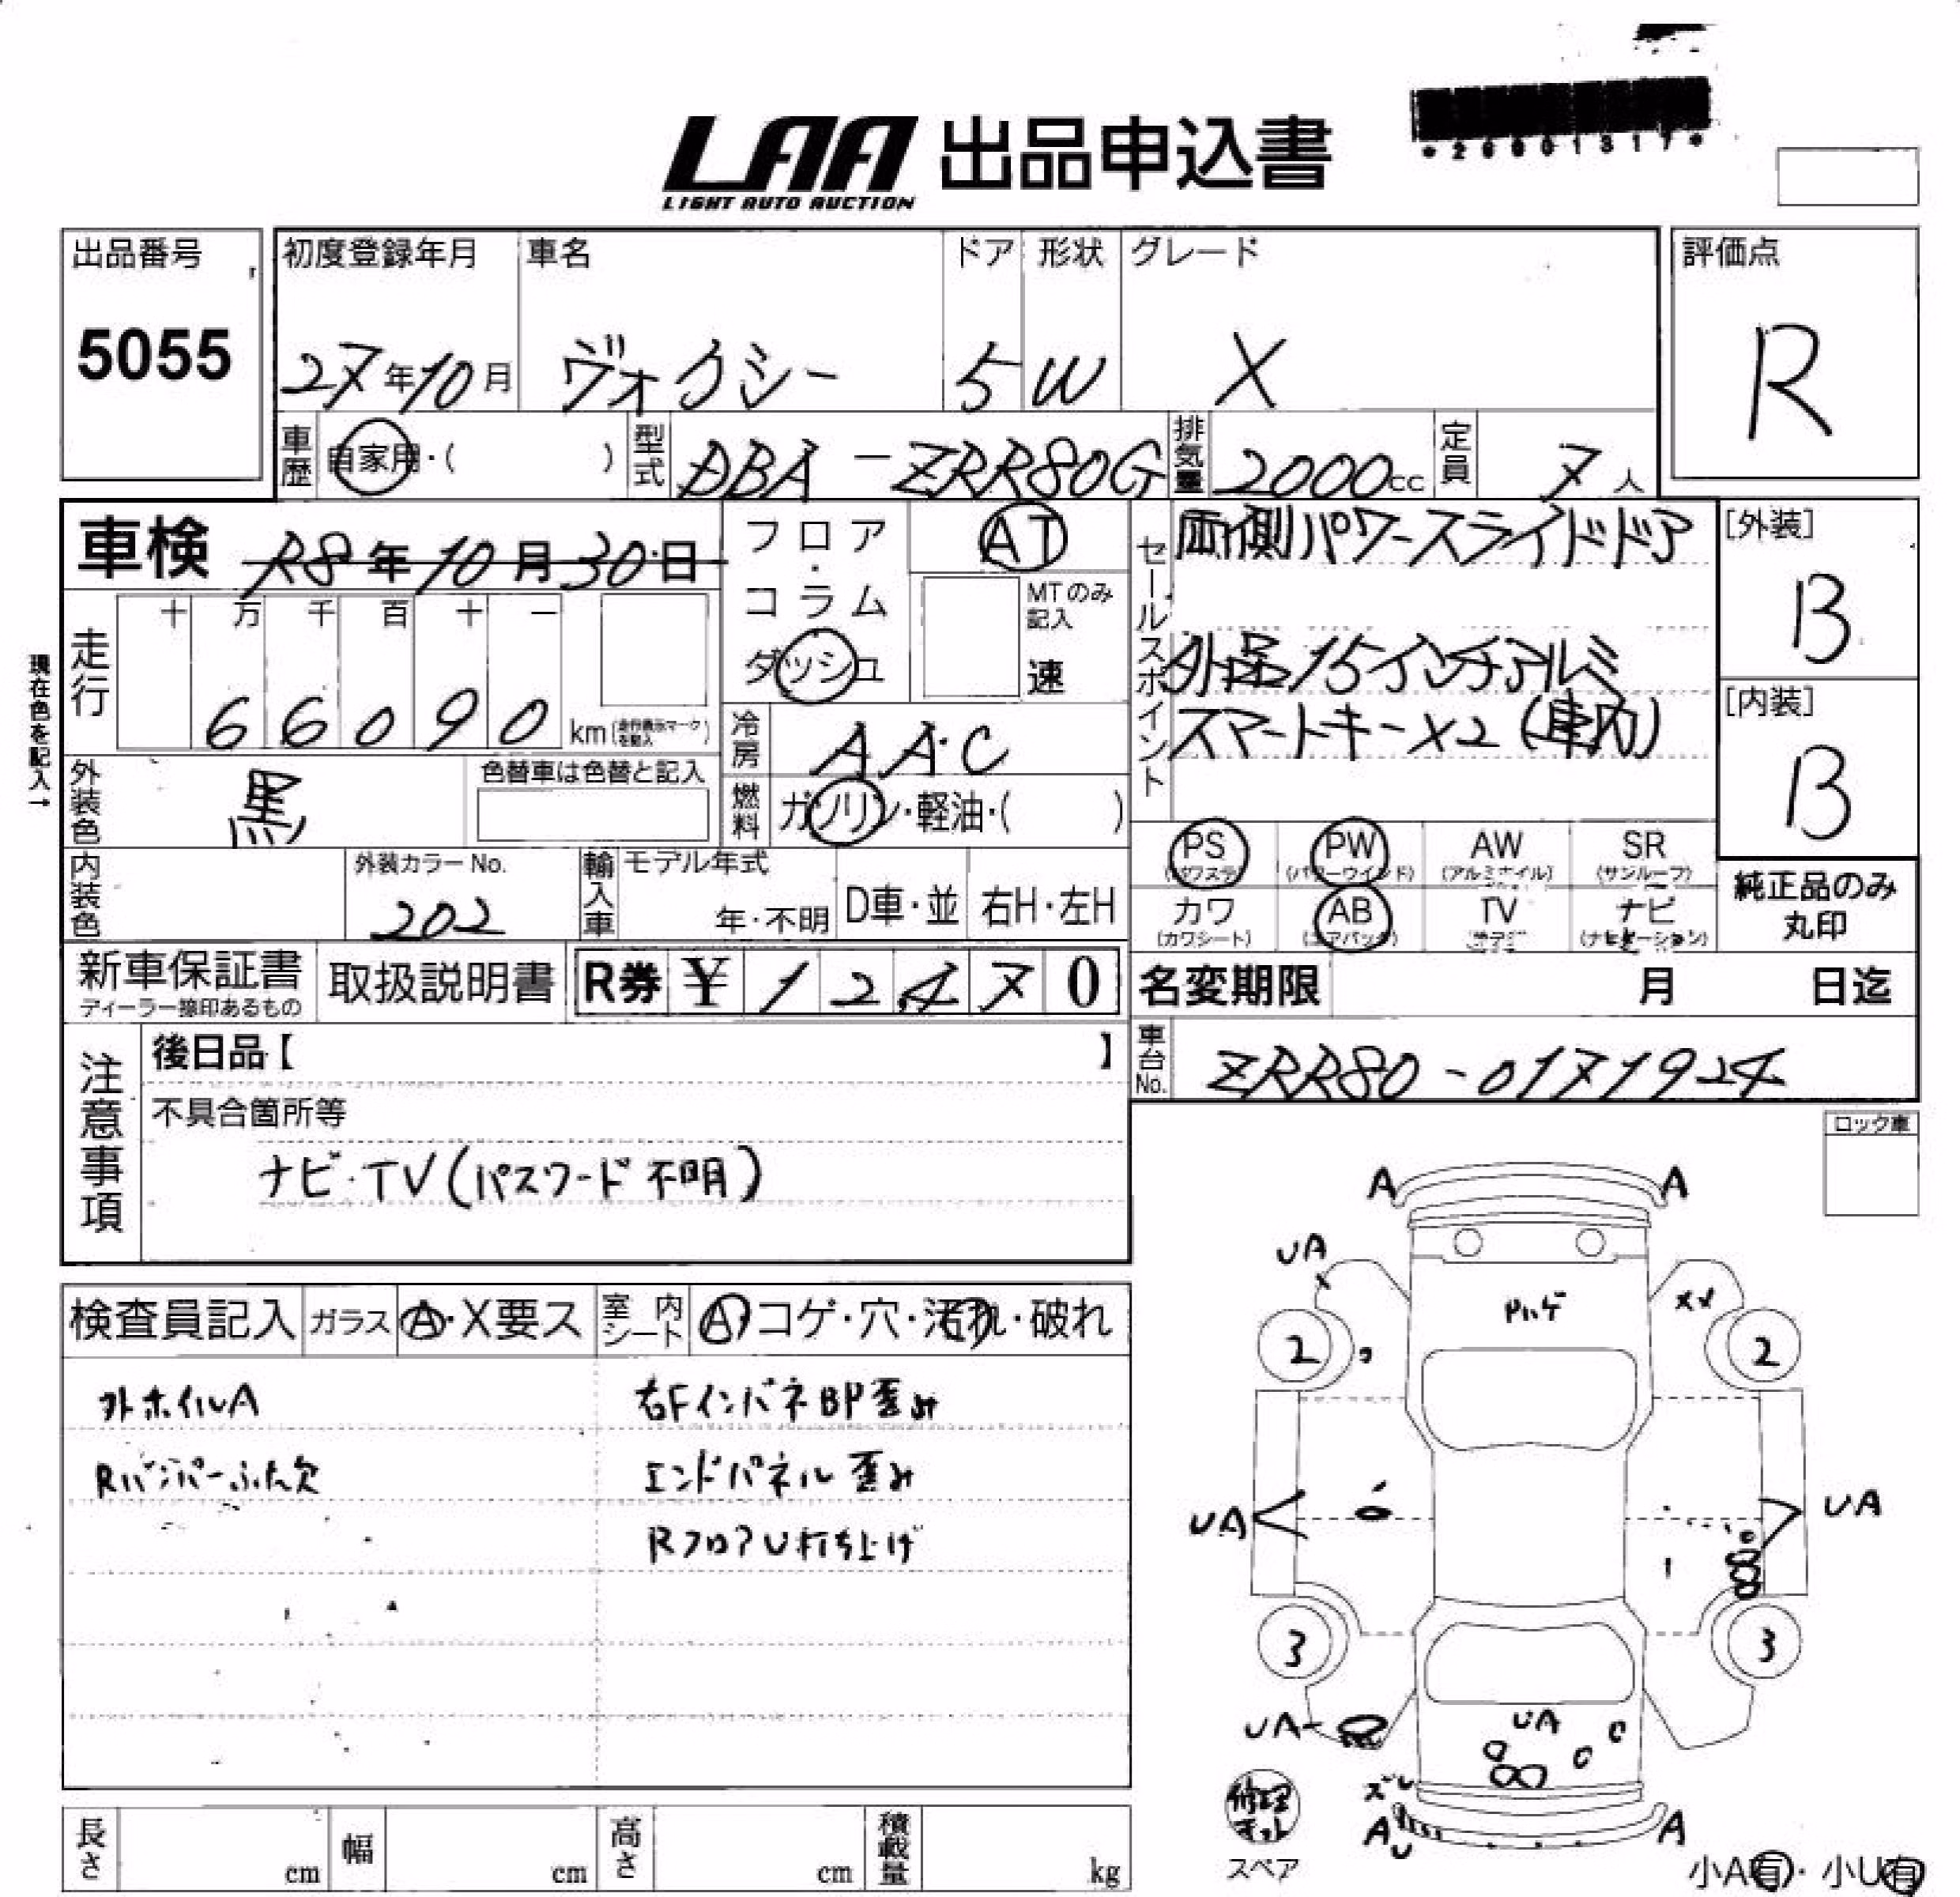 *26001317*
LAA 出品申込書
LIGHT AUTO AUCTION
出品番号
5055
初度登録年月 車名 ドア 形状 グレード
27年10月 ヴォクシー 5 W X
評価点
R
車歴 自家用・( ) 型式 DBA-ZRR80G 排気量 2000cc 定員 7人
車検 R8年10月30日
フロア・コラム
ダッシュ
AT
MTのみ記入
速
セールスポイント
両側パワースライドドア
外品15インチアルミ
スマートキーX2(車内)
[外装]
B
[内装]
B
現在色を記入→
走行 十 万 千 百 十 一
66090 km (走行表示マークを記入)
冷房 AAC
燃料 ガソリン・軽油・( )
外装色 黒 色替車は色替と記入
内装色 外装カラーNo. 202
輸入車 モデル年式 年・不明 D車・並 右H・左H
PS (パワステ) PW (パワーウインド) AW (アルミホイル) SR (サンルーフ)
カワ (カワシート) AB (エアバック) TV ナビ (ナビゲーション)
純正品のみ
丸印
新車保証書 ディーラー捺印あるもの
取扱説明書 R券 ¥12,470
名変期限 月 日迄
車台No. ZRR80-0171924
注意事項
後日品【 】
不具合箇所等
ナビ・TV(パスワード不明)
ロック車
検査員記入 ガラス A・X要ス 室内シート A コゲ・穴・汚れ・破れ
外ホイルA
右FインパネBP歪み
Rバンパーふた欠
エンドパネル歪み
RフロアU打ち上げ
A A
UA
Pハゲ
XX
2 2
UA UA
3 3
UA
UA
ズレ
A U
A
修理キット
スペア
小A有・小U有
長さ cm 幅 cm 高さ cm 積載量 kg